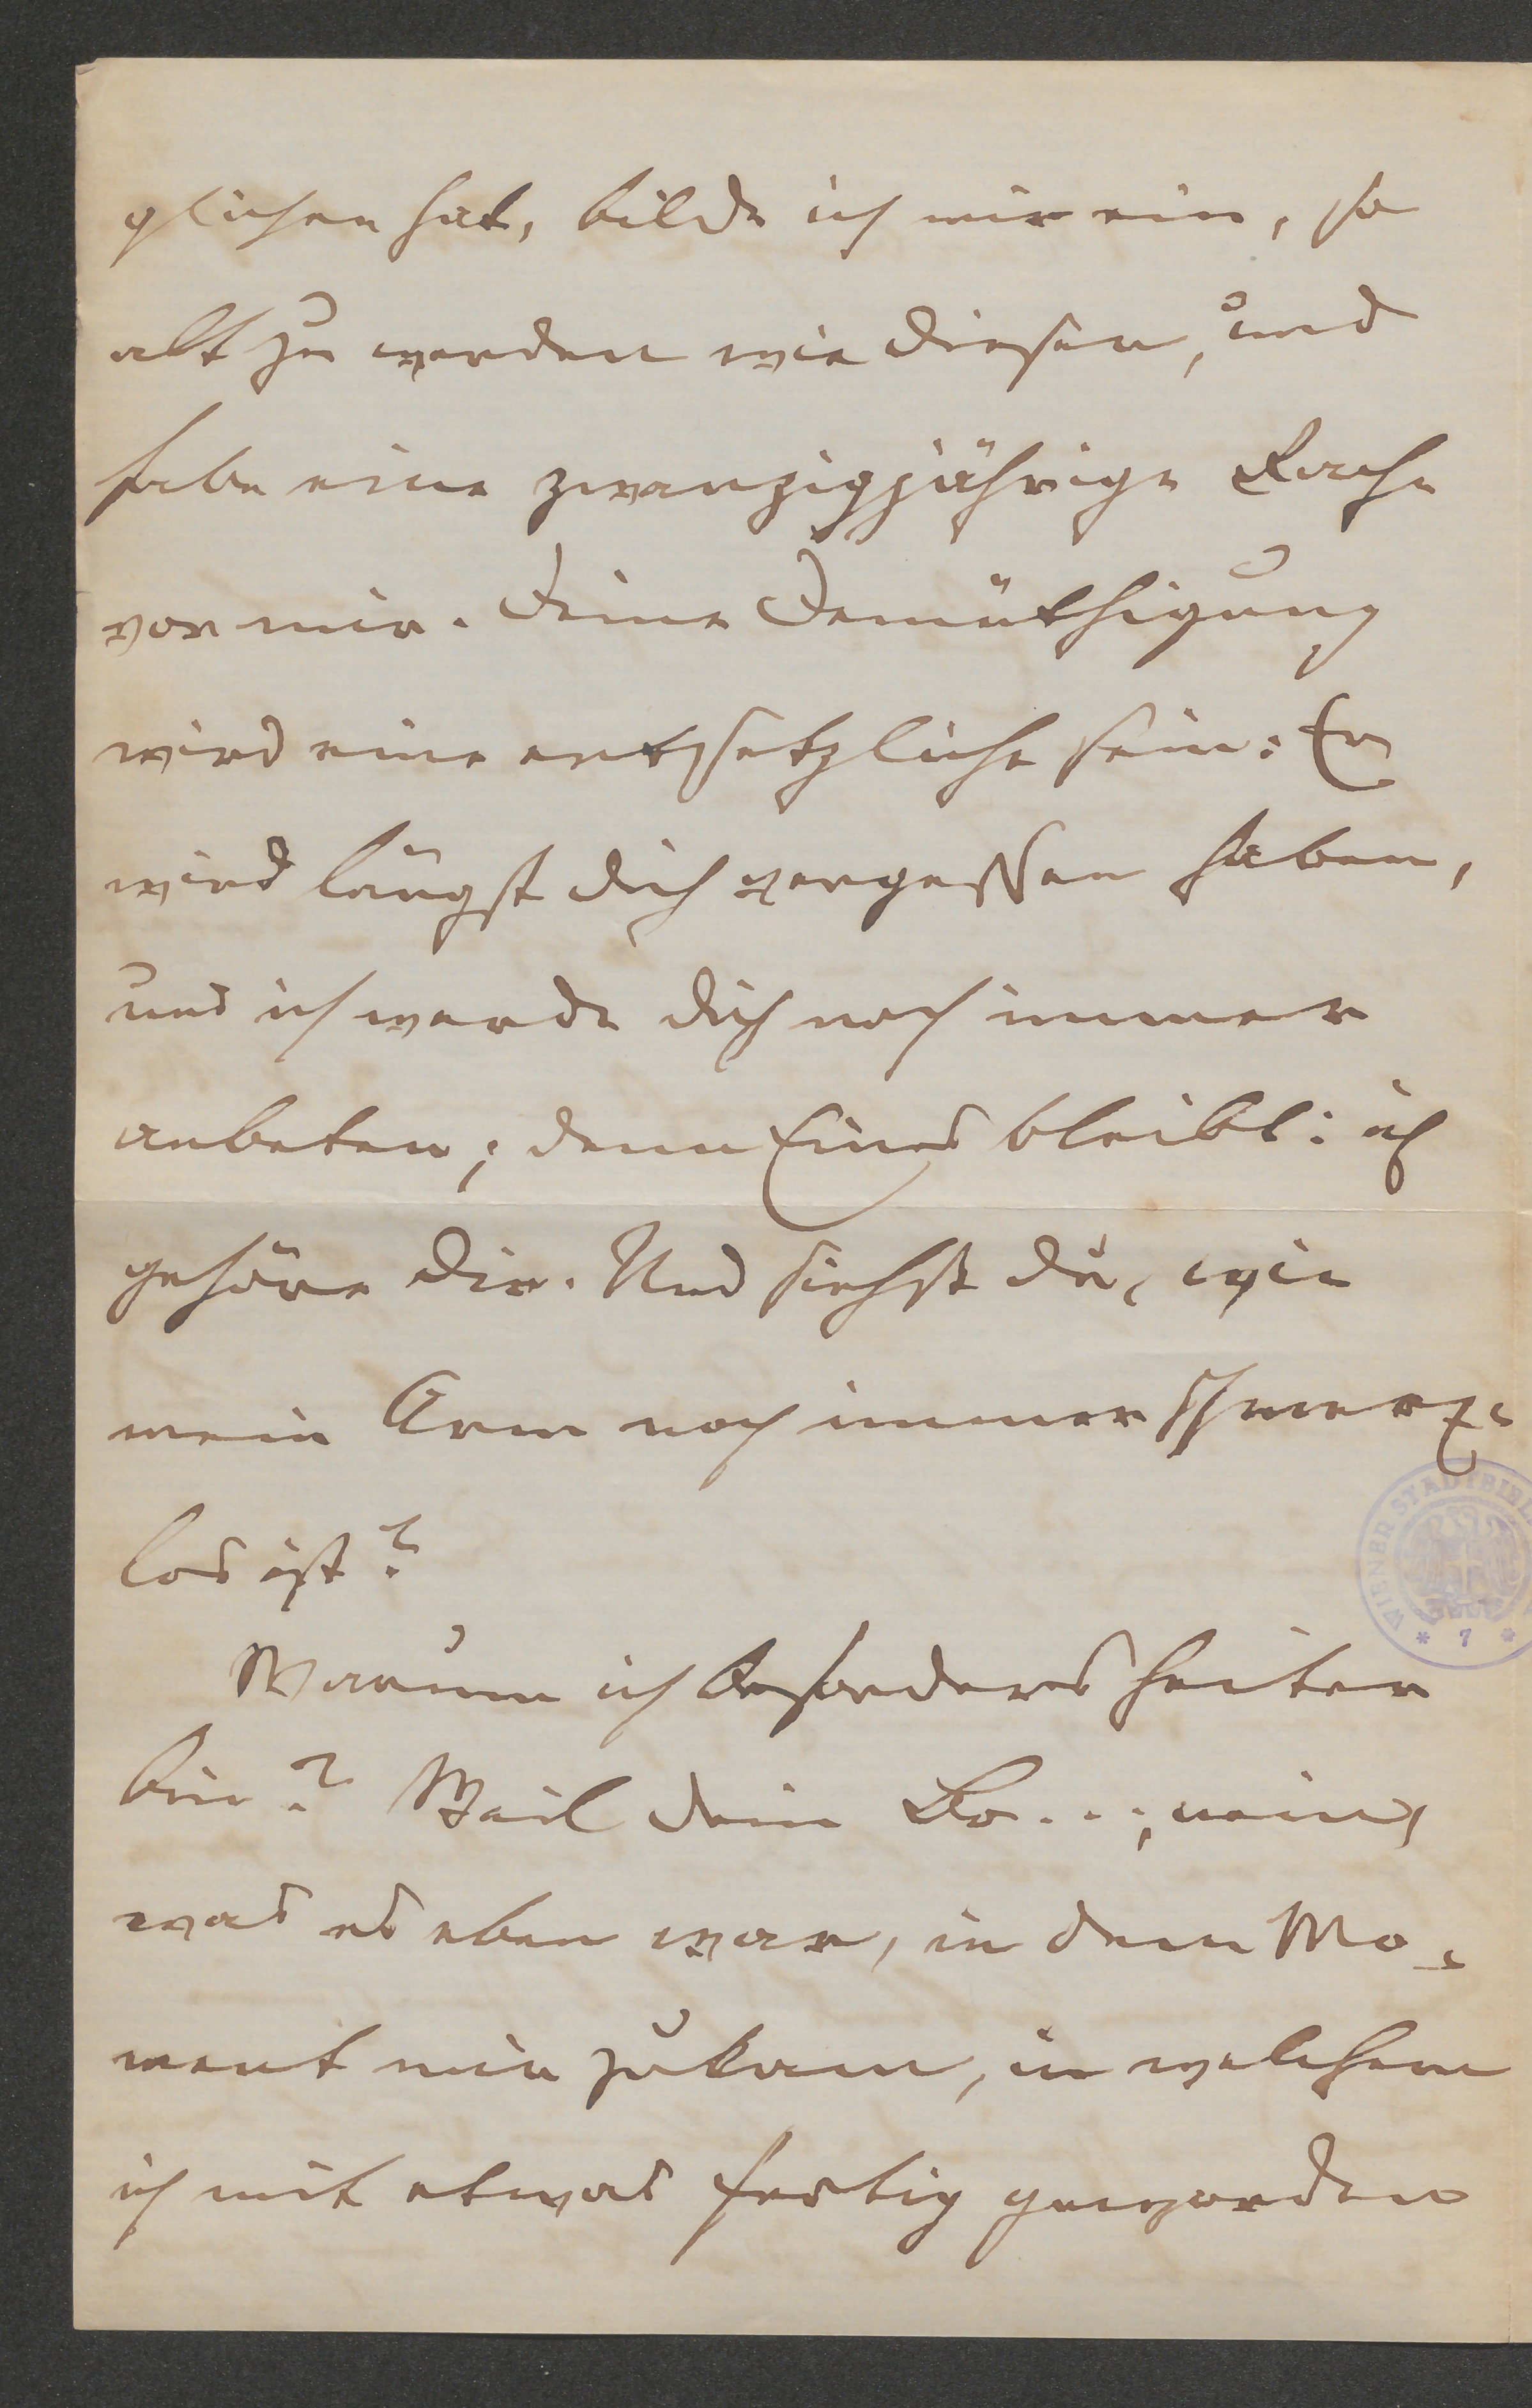 glichen hat, bilde ich mir ein, so
alt zu werden wie dieser, und
habe eine zwanzigjährige Rache
vor mir. Deine Demüthigung
wird eine entsetzliche sein: Er
wird längst dich vergessen haben,
und ich werde dich noch immer
anbeten; denn Eines bleibt: ich
gehöre dir. Und siehst du, wie
mein Arm noch immer schmerz-
los ist?
Warum ich besonders heiter
bin? Weil dein Bo...; nein,
was es eben war, in dem Mo-
ment mir zukam, in welchem
ich mit etwas fertig geworden
WIENER STADTBIBL
* 7 *